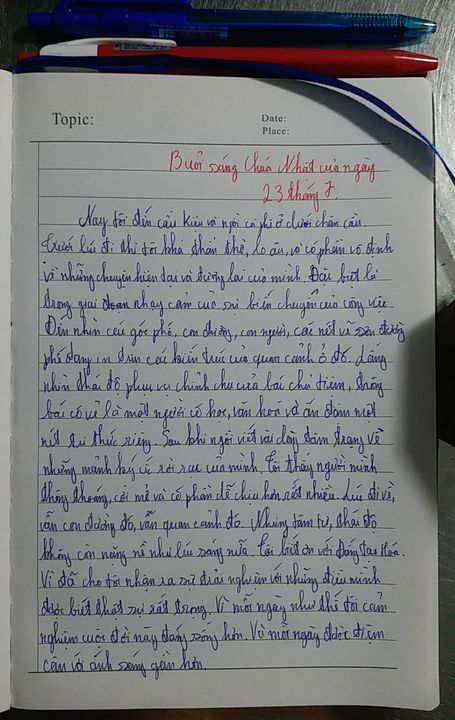 Topic:
Date:
Place:
Buổi sáng Chúa Nhật của ngày
23 tháng 7.
Nay tôi đến cầu Kiệu và ngồi cà phê ở dưới chân cầu.
Trước lúc đi thì tôi khá thẫn thờ, lo âu, và có phần vô định
về những chuyện hiện tại và tương lai của mình. Đặc biệt là
trong giai đoạn nhạy cảm cực sự biến chuyển của công việc
Đến nhìn các góc phố, con đường, con người, các nét vẽ sơn đường
phố đang in trên cái kiến trúc của quan cảnh ở đó. Lắng
nhìn thái độ phục vụ chỉnh chu của bác chủ tiệm, trông
bác có vẻ là một người có học, văn hóa và ẩn đậm một
nét tri thức riêng. Sau khi ngồi viết vài dòng tâm trạng về
những mảnh ký ức rời rạc của mình. Tôi thấy người mình
thông thoáng, cởi mở và có phần dễ chịu hơn rất nhiều. Lúc đi về,
vẫn con đường đó, vẫn quan cảnh đó. Nhưng tâm tư, thái độ
không còn nặng nề như lúc sáng nữa. Tôi biết ơn với Đấng Tạo Hóa.
Vì đã cho tôi nhận ra sự trải nghiệm với những điều mình
được biết thật sự rất trọng. Vì mỗi ngày như thế tôi cảm
nghiệm cuộc đời này đáng sống hơn. Và mỗi ngày được tiệm
cận với ánh sáng gần hơn.